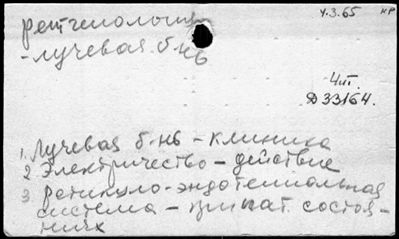 4.3.65 кр
рентгенология
-лучевая б-нь
Чт.
Д 33164.
1. Лучевая б-нь – клиника
2 Электричество – действие
3. ретикуло-эндотелиальная
система – при пат. состоя-
ниях